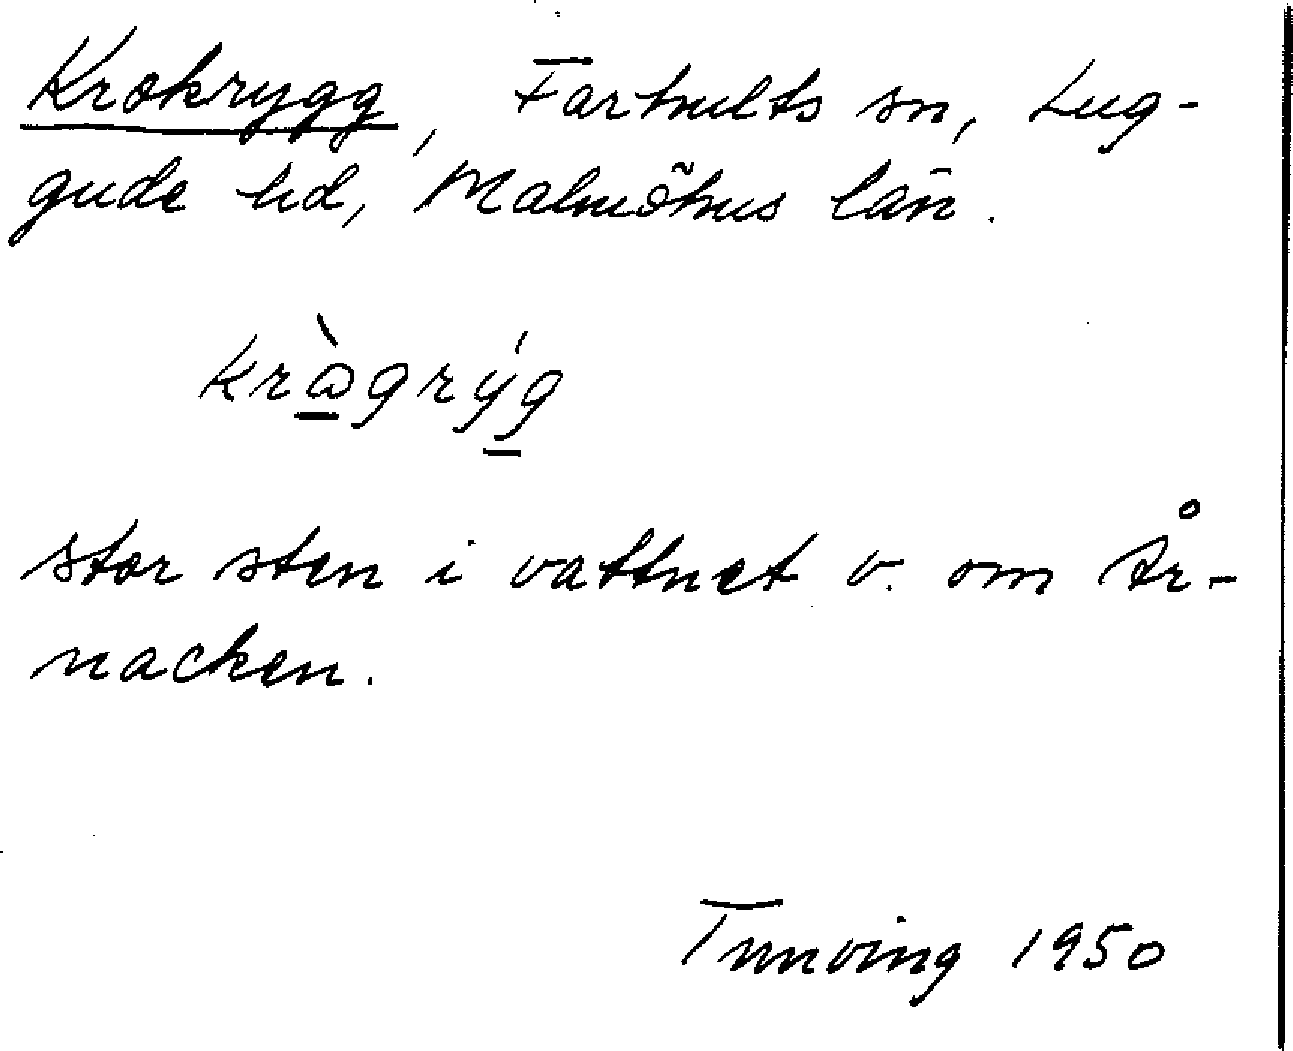 Krokrygg, Farhults sn, Lug-
gude hd, Malmöhus län.
kràgrýg
stor sten i vattnet v. om År-
nacken.
Tunving 1950